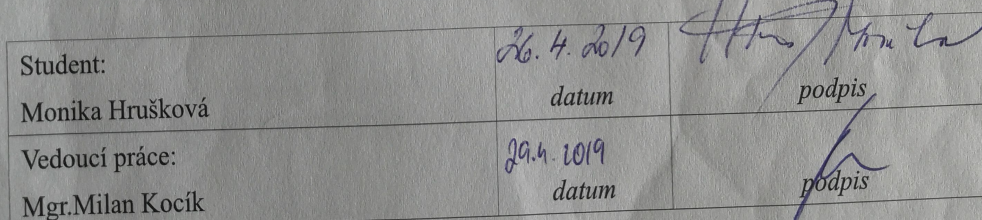 Student:
Monika Hrušková
26. 4. 2019
datum
podpis
Vedoucí práce:
Mgr.Milan Kocík
29.4. 2019
datum
podpis